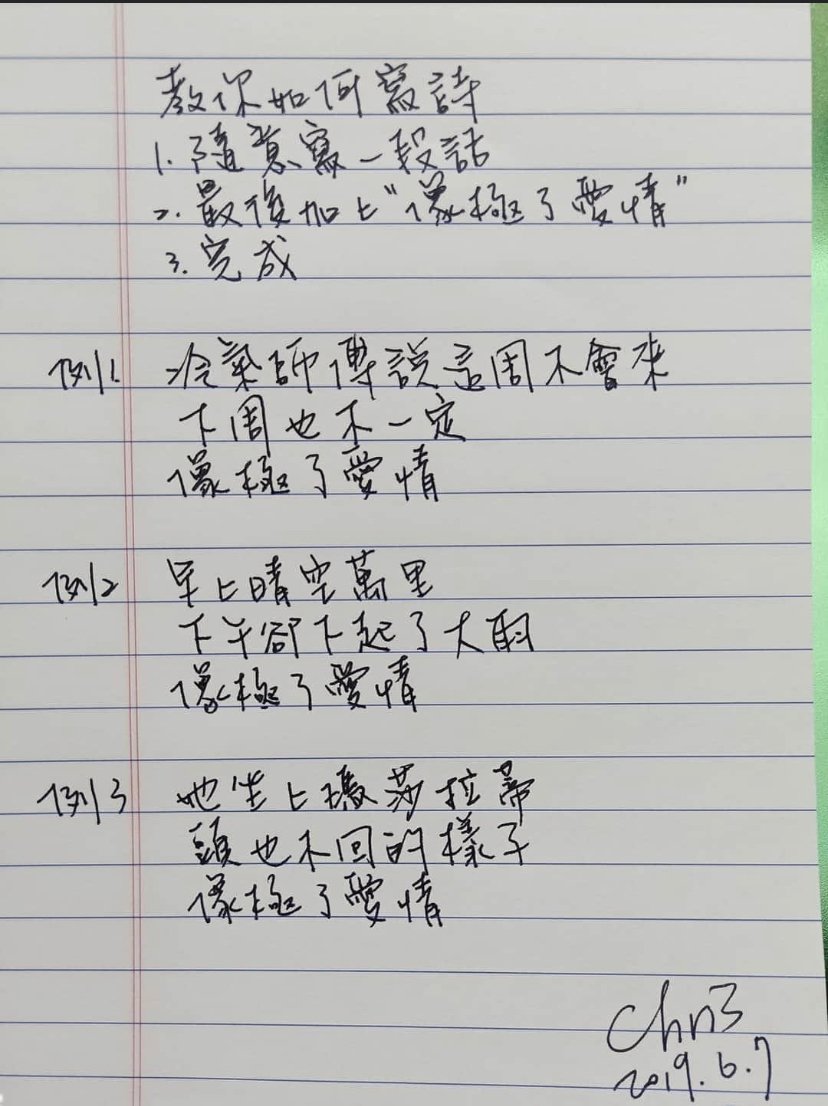 教你如何寫詩
1. 隨意寫一段話
2. 最後加上"像極了愛情"
3. 完成
例1. 冷氣師傅說這周不會來
下周也不一定
像極了愛情
例2 早上晴空萬里
下午卻下起了大雨
像極了愛情
例3 她坐上瑪莎拉蒂
頭也不回的樣子
像極了愛情
Chris
2019.6.7